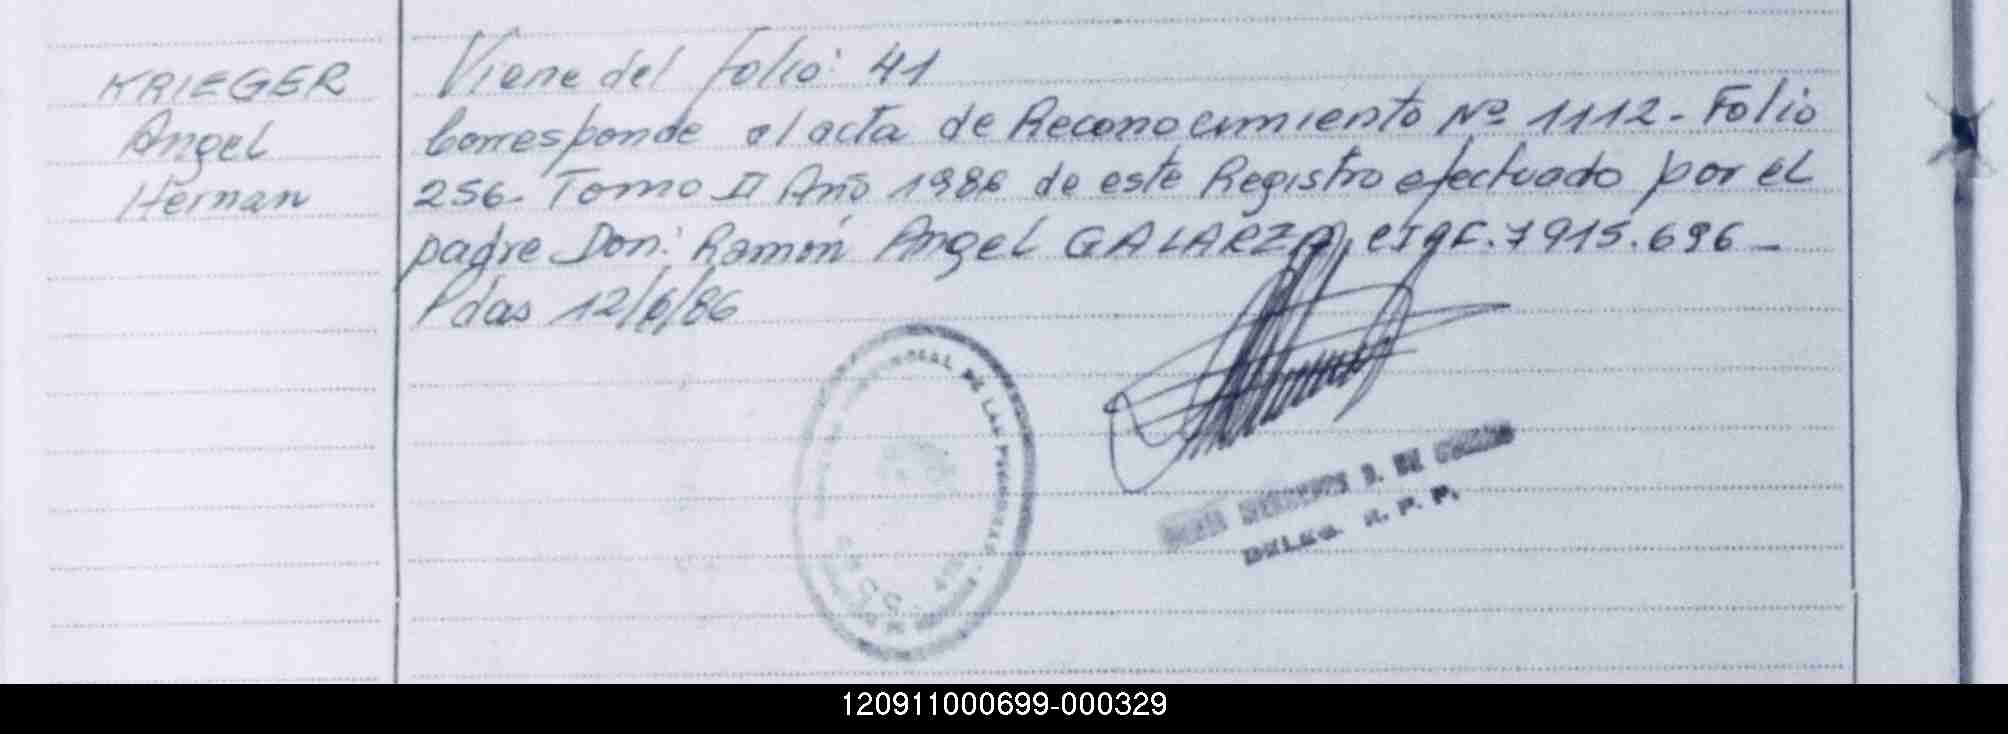 KRIEGER
Angel
Hernan
Viene del folio: 41
Corresponde al acta de Reconocimiento Nº 1112 - Folio
256 - Tomo II Año 1986 de este Registro efectuado por el
padre Don: Ramón Angel GALARZA, 7915.696 -
Pdas 12/6/86
DE LAS PERSONAS
DELEG. R. P. P.
120911000699-000329